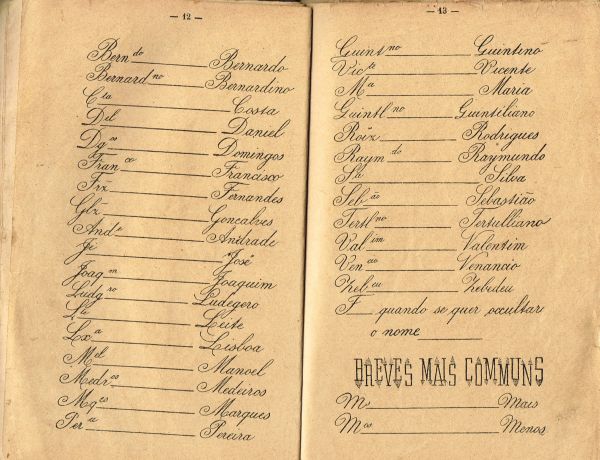 — 12 —
Bern do Bernardo
Bernard no Bernardino
Cta Costa
Dil Daniel
Dgos Domingos
Franco Francisco
Frz Fernandes
Glz Goncalves
Ande Andrade
Jé "José"
Joaqm Joaquim
Ludgro Ludegero
Lte Leite
Lxa Lisboa
Mel Manoel
Medros Medeiros
Mqes Marques
Perа Pereira
— 13 —
Guintno Guintino
Victe Vicente
Ma Maria
Guintlno Guintiliano
Roiz Rodrigues
Raymdo Raymundo
Sa Silva
Sebão Sebastião
Tertlno Tertulliano
Valim Valentim
Vencio Venancio
Zebeu Zebedeu
F quando se quer occultar
o nome
BREVES MAIS COMMUNS
Ms Mais
Mos Menos